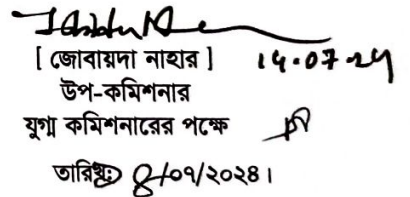 [ জোবায়দা নাহার ] 14.07.24
উপ-কমিশনার
যুগ্ম কমিশনারের পক্ষে
তারিখঃ 8/০৭/২০২৪।